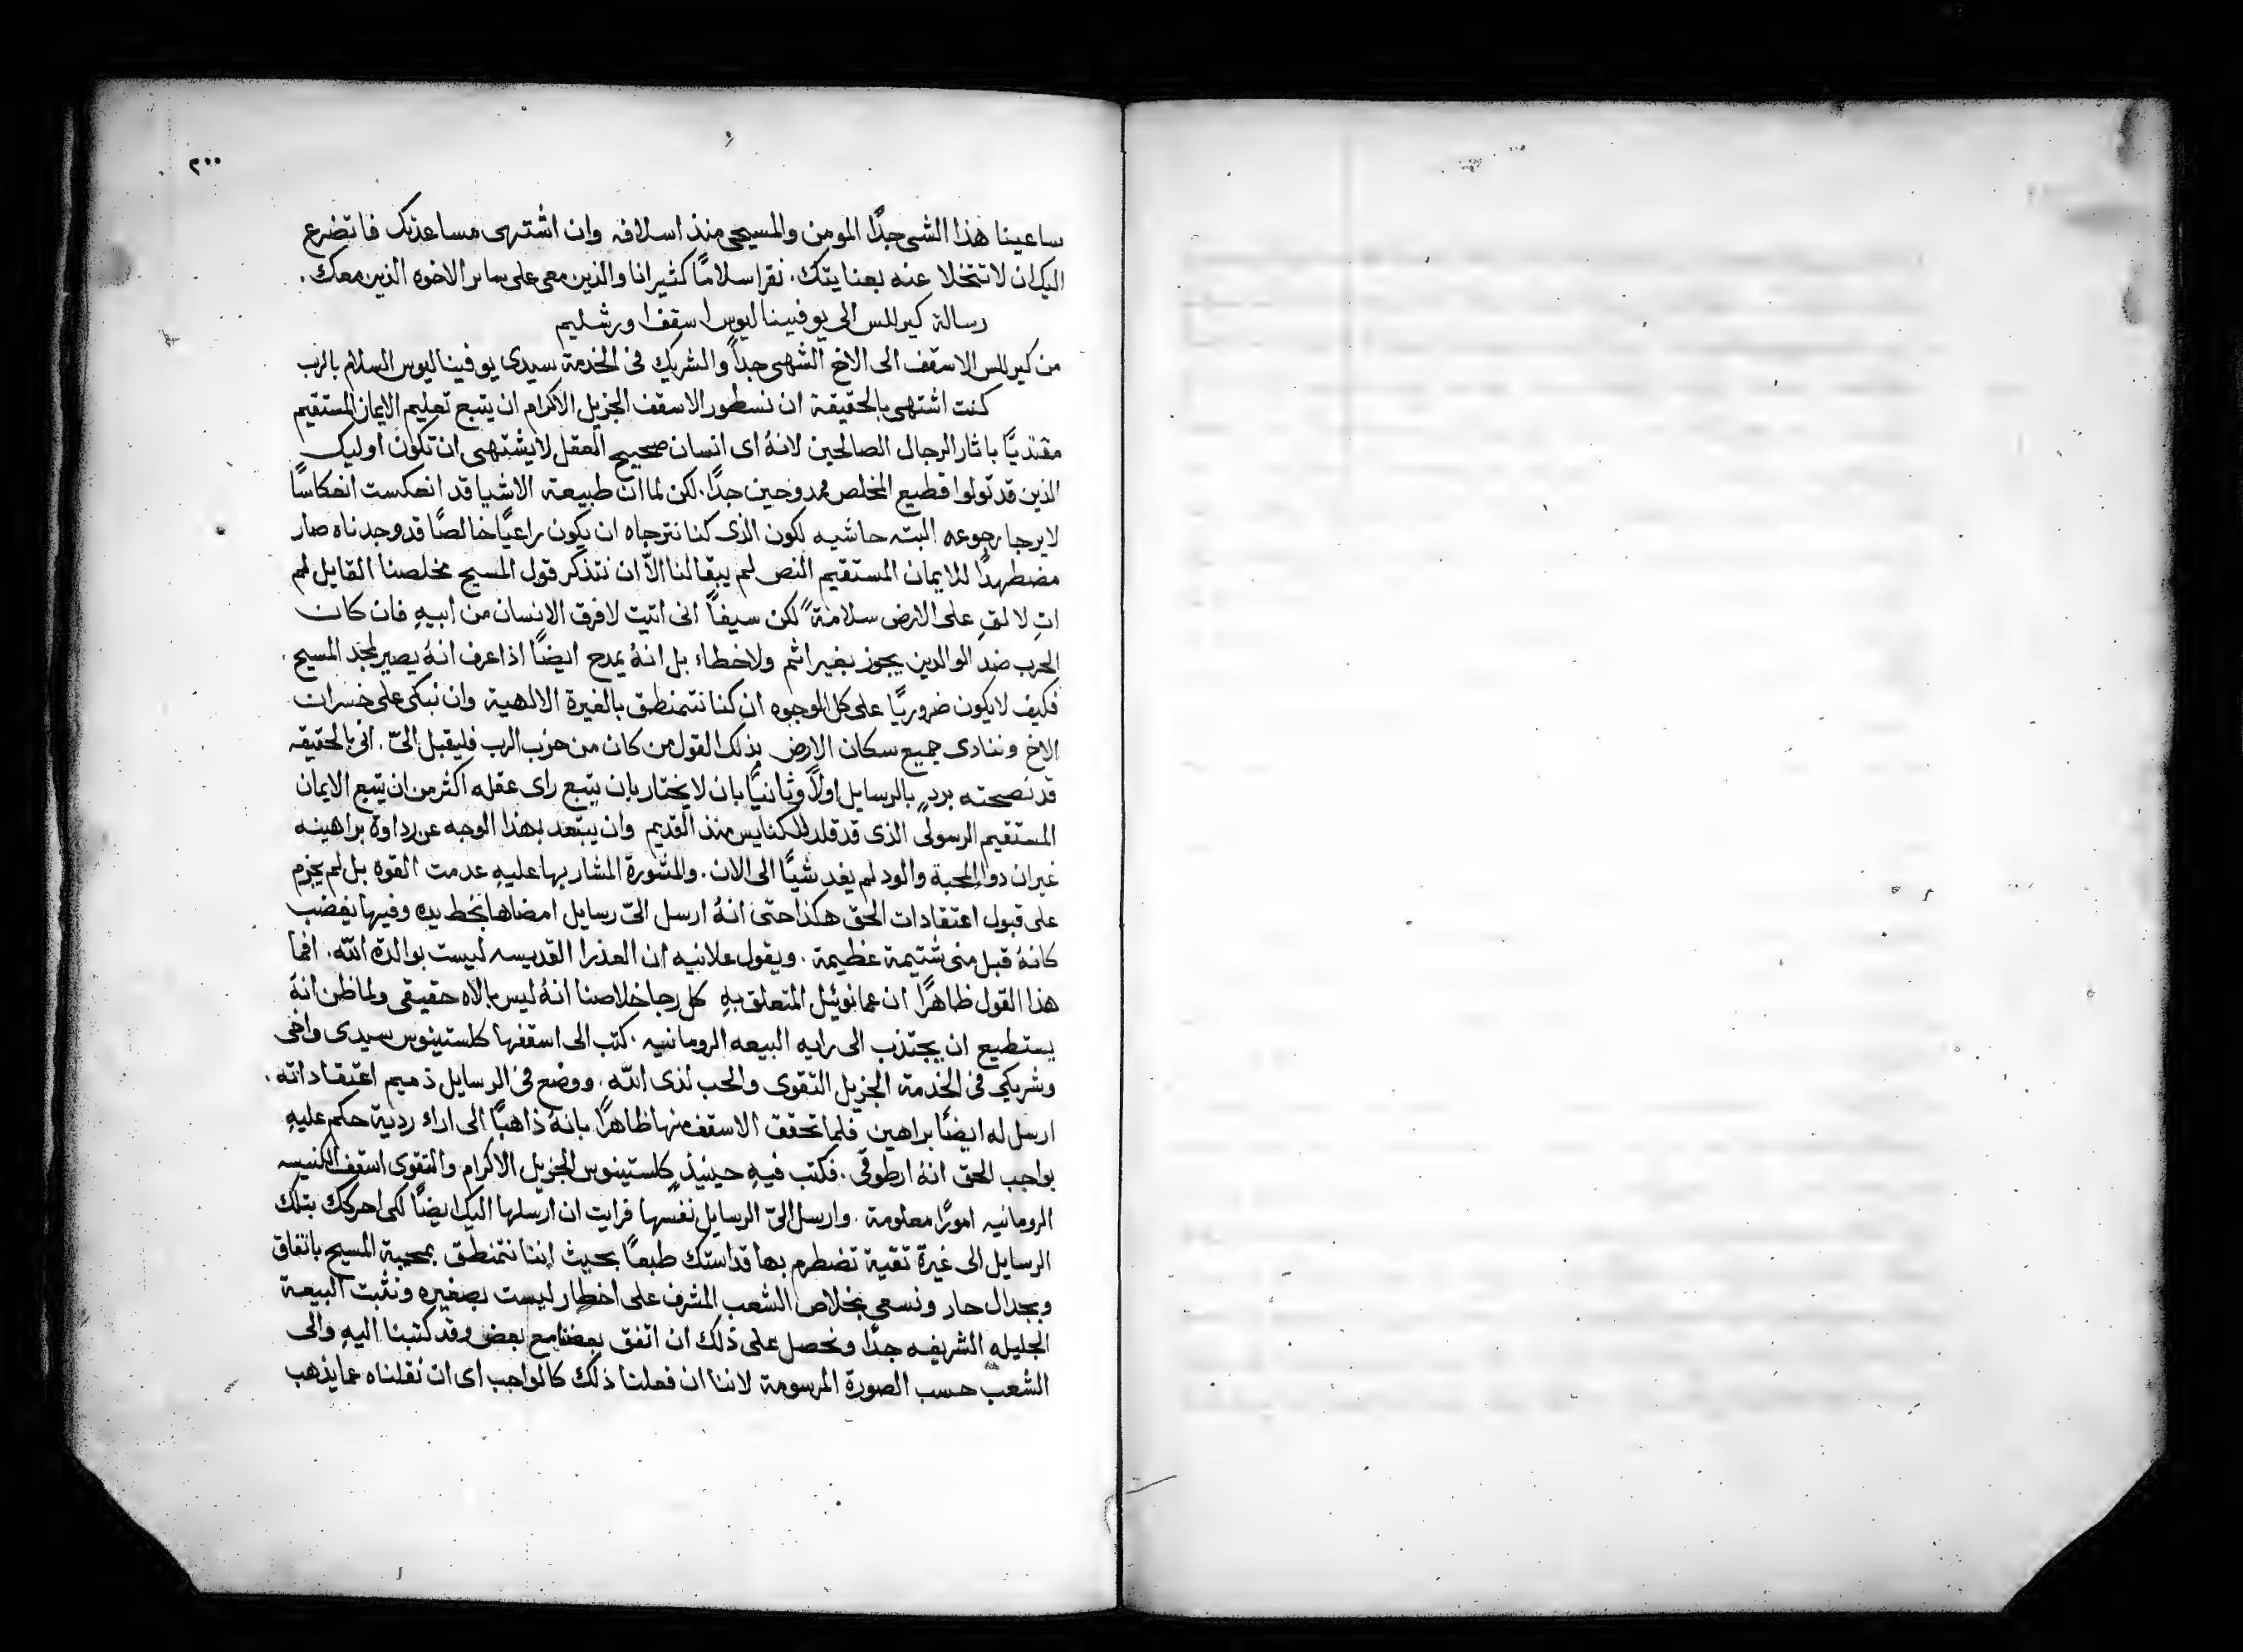 ٢٠٠
ساعينا هذا الشى جدًا المومن والمسيحى منذ اسلافه وان اشتهى مساعدتك فاتضرع
اليك ان لا تتخلا عنه بعنايتك. نقرا سلامًا كثيرا انا والذين معى على ساير الاخوه الذين معك.
رسالة كيرللس الى يوفيناليوس اسقف اورشليم
من كيرللس الاسقف الى الاخ الشهى جداً والشريك فى الخدمة سيدى يوفيناليوس السلام بالرب
كنت اشتهى بالحقيقة ان نسطور الاسقف الجزيل الاكرام ان يتبع تعليم الايمان المستقيم
مقتديًا باثار الرجال الصالحين لانهُ اى انسان صحيح العقل لا يشتهى ان تكون اوليك
الذين قد تولوا قطيع المخلص ممدوحين جدًا. لكن لما ان طبيعة الاشيا قد انعكست انعكاسًا
لا يرجا رجوعه البته حاشيه لكون الذى كنا نترجاه ان يكون راعيًا خالصًا قد وجدناه صار
مضطهدًا للايمان المستقيم النص لم يبقا لنا الّا ان نتذكر قول المسيح مخلصنا القايل لم
اتِ لا لقِ على الارض سلامةً لكن سيفاً انى اتيت لافرق الانسان من ابيهِ فان كان
الحرب ضد الوالدين يجوز بغير اثم ولا خطاء بل انهُ يمدح ايضًا اذا عرف انهُ يصير لمجد المسيح.
فكيف لا يكون ضروريًا على كل الوجوه ان كنا نتمنطق بالغيرة الالهية وان نبكى على خسران
الاخ وننادى جميع سكان الارض بذلك القول من كان من حزب الرب فليقبل الىّ. انى بالحقيقه
قد نصحته بردٍ بالرسايل اولاً وثانيًا بان لا يختار بان يتبع راى عقله اكثر من ان يتبع الايمان
المستقيم الرسولى الذى قد قلد للكنايس منذ القديم وان يبتعد بهذا الوجه عن رداوة براهينه
غير ان دوا المحبة والود لم يفد شيًا الى الان. والمشورة المشار بها عليهِ عدمت القوه بل لم يجزم
على قبول اعتقادات الحق هكذا حتى انهُ ارسل الىّ رسايل امضاها بخط يده وفيها يغضب
كانهُ قبل منى شتيمة عظيمة. ويقول علانيه ان العذرا القديسه ليست بوالدة الله. افما
هذا القول ظاهرًا ان عمانوئيل المتعلق بهِ كل رجا خلاصنا انهُ ليس بالاه حقيقى ولما ظن انهُ
يستطيع ان يجتذب الى رايه البيعه الرومانيه. كتب الى اسقفها كلستينوس سيدى واخى
وشريكي فى الخدمة الجزيل التقوى والحب لذى الله. ووضع فى الرسايل ذميم اعتقاداته.
ارسل له ايضًا براهين فلما تحقق الاسقف منها ظاهرًا بانهُ ذاهبًا الى اراء ردية حكم عليهِ
بواجب الحق انهُ ارطوقى. فكتب فيهِ حينيذٍ كلستينوس الجزيل الاكرام والتقوى اسقف الكنيسه
الرومانيه امورًا معلومة. وارسل الىّ الرسايل نفسها فرايت ان ارسلها اليك ايضًا لكى احركك بتلك
الرسايل الى غيرة تقية تضطرم بها قداستك طبعًا بحيث اننا نتمنطق بمحبة المسيح باتفاق
وبجدال حار ونسعى بخلاص الشعب المشرف على اخطار ليست بصغيره ونثبت البيعة
الجليله الشريفه جدًا ونحصل على ذلك ان اتفق بعضنا مع بعض وقد كتبنا اليهِ والى
الشعب حسب الصورة المرسومة لاننا ان فعلنا ذلك كالواجب اى ان نقلناه عما يذهب